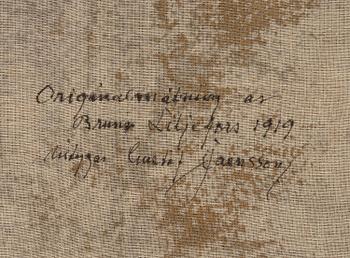 Originalmålning av
Bruno Liljefors 1919
intygar Jaensson